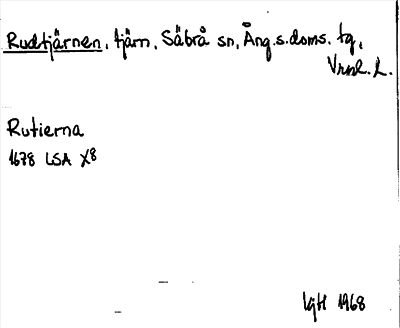 Rudtjärnen, tjärn, Säbrå sn, Ång.s.doms. tg,
Vrnl. l.
Rutierna
1678 LSA X8
1968